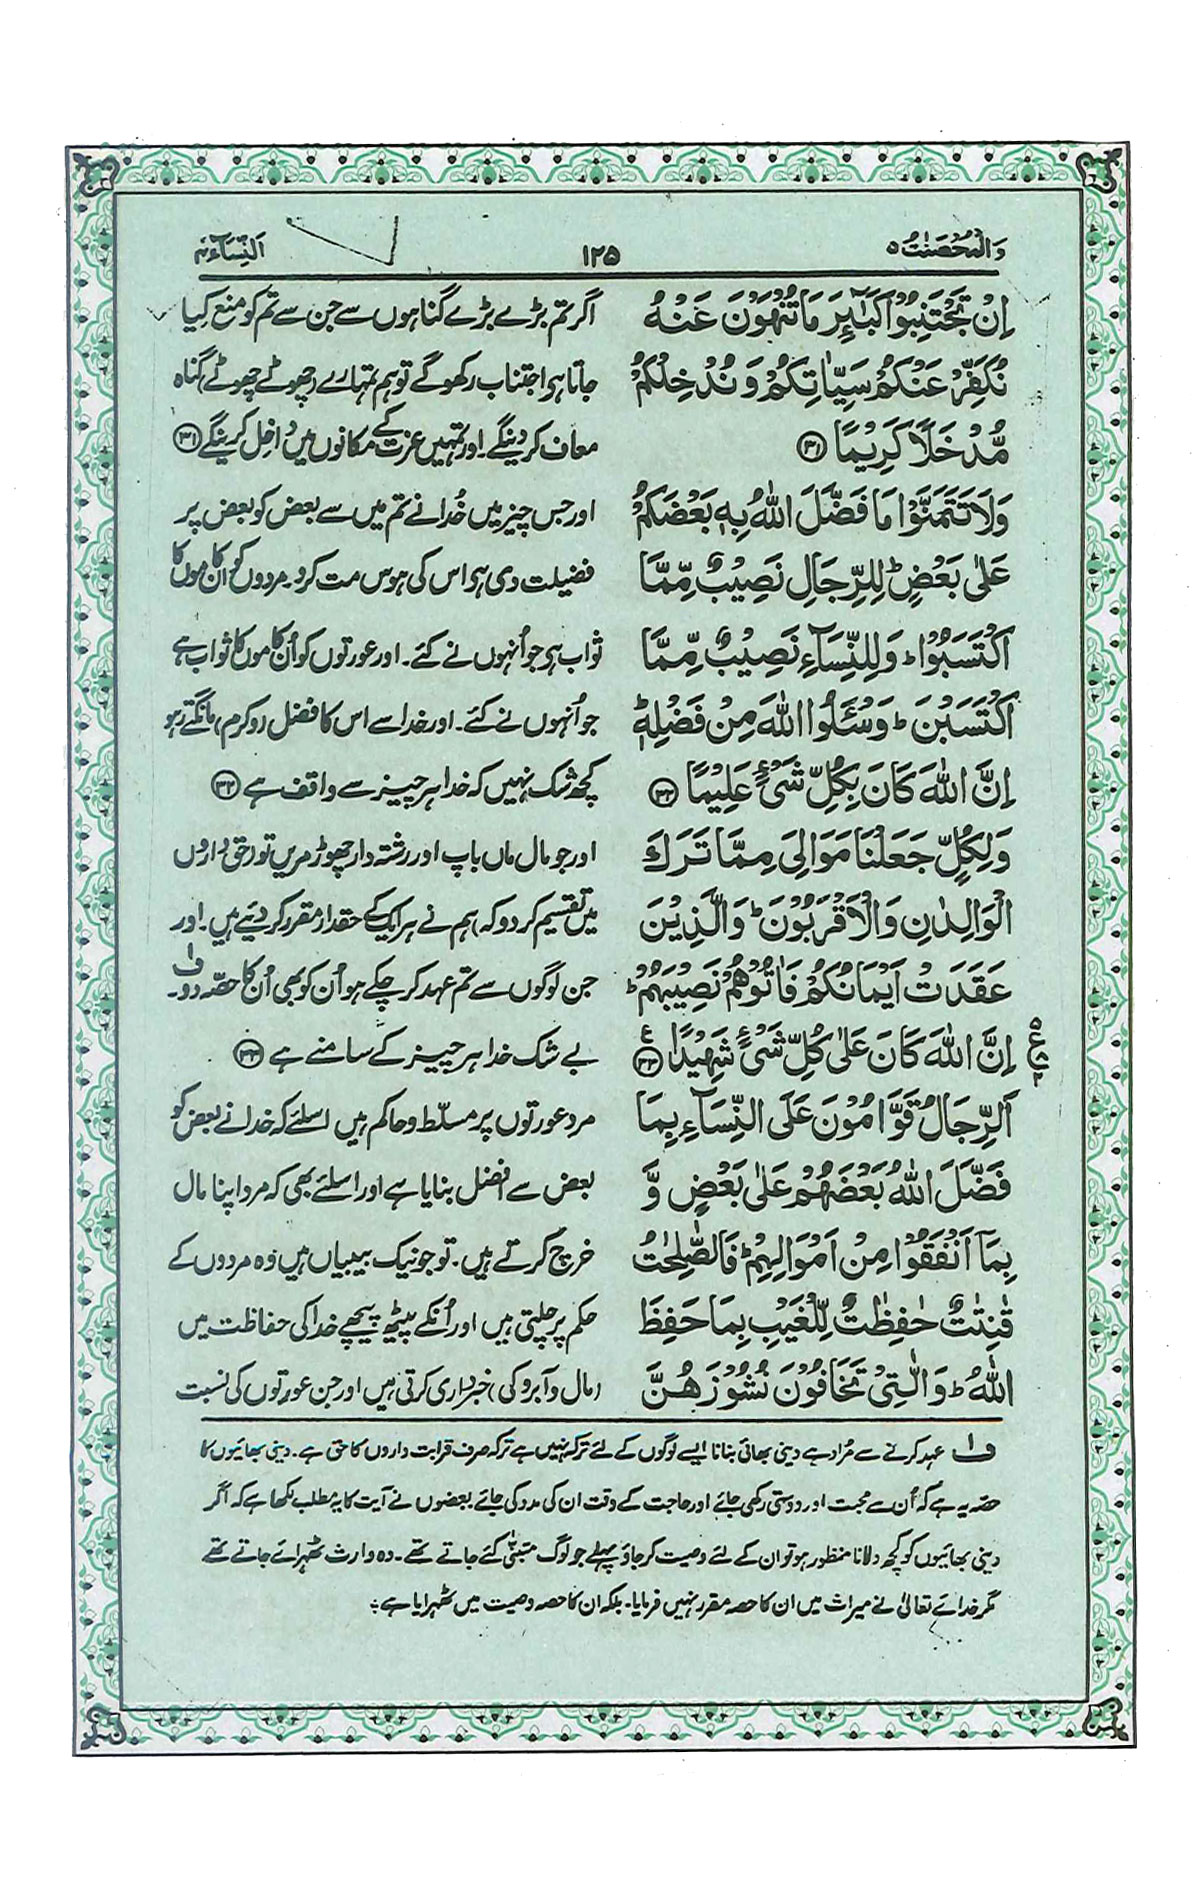 وَالْمُحْصَنٰتُ ۵
۱۲۵
اَلنِّسَآء ۴
اِنْ تَجْتَنِبُوْا كَبَآىِٕرَ مَا تُنْهَوْنَ عَنْهُ
نُكَفِّرْ عَنْكُمْ سَيِّاٰتِكُمْ وَنُدْخِلْكُمْ
مُّدْخَلًا كَرِيْمًا ﴿۳۱﴾
وَلَا تَتَمَنَّوْا مَا فَضَّلَ اللّٰهُ بِهٖ بَعْضَكُمْ
عَلٰى بَعْضٍ ؕ لِلرِّجَالِ نَصِيْبٌ مِّمَّا
اكْتَسَبُوْا ؕ وَلِلنِّسَآءِ نَصِيْبٌ مِّمَّا
اكْتَسَبْنَ ؕ وَسْـَٔلُوا اللّٰهَ مِنْ فَضْلِهٖ ؕ
اِنَّ اللّٰهَ كَانَ بِكُلِّ شَىْءٍ عَلِيْمًا ﴿۳۲﴾
وَلِكُلٍّ جَعَلْنَا مَوَالِىَ مِمَّا تَرَكَ
الْوَالِدٰنِ وَالْاَقْرَبُوْنَ ؕ وَالَّذِيْنَ
عَقَدَتْ اَيْمَانُكُمْ فَاٰتُوْهُمْ نَصِيْبَهُمْ ؕ
اِنَّ اللّٰهَ كَانَ عَلٰى كُلِّ شَىْءٍ شَهِيْدًا ﴿۳۳﴾ ع
اَلرِّجَالُ قَوّٰمُوْنَ عَلَى النِّسَآءِ بِمَا
فَضَّلَ اللّٰهُ بَعْضَهُمْ عَلٰى بَعْضٍ وَّ
بِمَآ اَنْفَقُوْا مِنْ اَمْوَالِهِمْ ؕ فَالصّٰلِحٰتُ
قٰنِتٰتٌ حٰفِظٰتٌ لِّلْغَيْبِ بِمَا حَفِظَ
اللّٰهُ ؕ وَالّٰتِىْ تَخَافُوْنَ نُشُوْزَهُنَّ
اگر تم بڑے بڑے گناہوں سے جن سے تم کو منع کیا
جاتا ہی اجتناب رکھو گے تو ہم تمہارے (چھوٹے چھوٹے) گناہ
معاف کر دینگے اور تمہیں عزت کے مکانوں میں داخل کرینگے ﴿۳۱﴾
اور جس چیز میں خُدا نے تم میں سے بعض کو بعض پر
فضیلت دی ہی اس کی ہوس مت کرو۔ مردوں کو اُن کاموں کا
ثواب ہی جو اُنہوں نے کئے۔ اور عورتوں کو اُن کاموں کا ثواب ہے
جو اُنہوں نے کئے۔ اور خدا سے اس کا فضل (و کرم) مانگتے رہو
کچھ شک نہیں کہ خدا ہر چیز سے واقف ہے ﴿۳۲﴾
اور جو مال ماں باپ اور رشتہ دار چھوڑ مریں تو (حق داروں
میں تقسیم کر دو کہ) ہم نے ہر ایک کے حقدار مقرر کر دئیے ہیں۔ اور
جن لوگوں سے تم عہد کر چکے ہو اُن کو بھی اُن کا حصّہ دو ف۱۔
بے شک خدا ہر چیز کے سامنے ہے ﴿۳۳﴾
مرد عورتوں پر مسلط و حاکم ہیں اسلئے کہ خدا نے بعض کو
بعض سے افضل بنایا ہے اور اسلئے بھی کہ مرد اپنا مال
خرچ کرتے ہیں۔ تو جو نیک بیبیاں ہیں وہ مردوں کے
حکم پر چلتی ہیں اور اُنکے پیٹھ پیچھے خدا کی حفاظت میں
(مال و آبرو کی) خبرداری کرتی ہیں اور جن عورتوں کی نسبت
ف۱ عہد کرنے سے مُراد ہے دینی بھائی بنانا ایسے لوگوں کے لئے ترکہ نہیں ہے ترکہ صرف قرابت داروں کا حق ہے۔ دینی بھائیوں کا
حصّہ یہ ہے کہ اُن سے محبت اور دوستی رکھی جائے اور حاجت کے وقت ان کی مدد کی جائے بعضوں نے آیت کا یہ مطلب لکھا ہے کہ اگر
دینی بھائیوں کو کچھ دلانا منظور ہو تو ان کے لئے وصیت کر جاؤ پہلے جو لوگ متبنّٰی کئے جاتے تھے۔ وہ وارث ٹھہرائے جاتے تھے
مگر خدائے تعالیٰ نے میراث میں ان کا حصہ مقرر نہیں فرمایا۔ بلکہ ان کا حصہ وصیت میں ٹھہرایا ہے